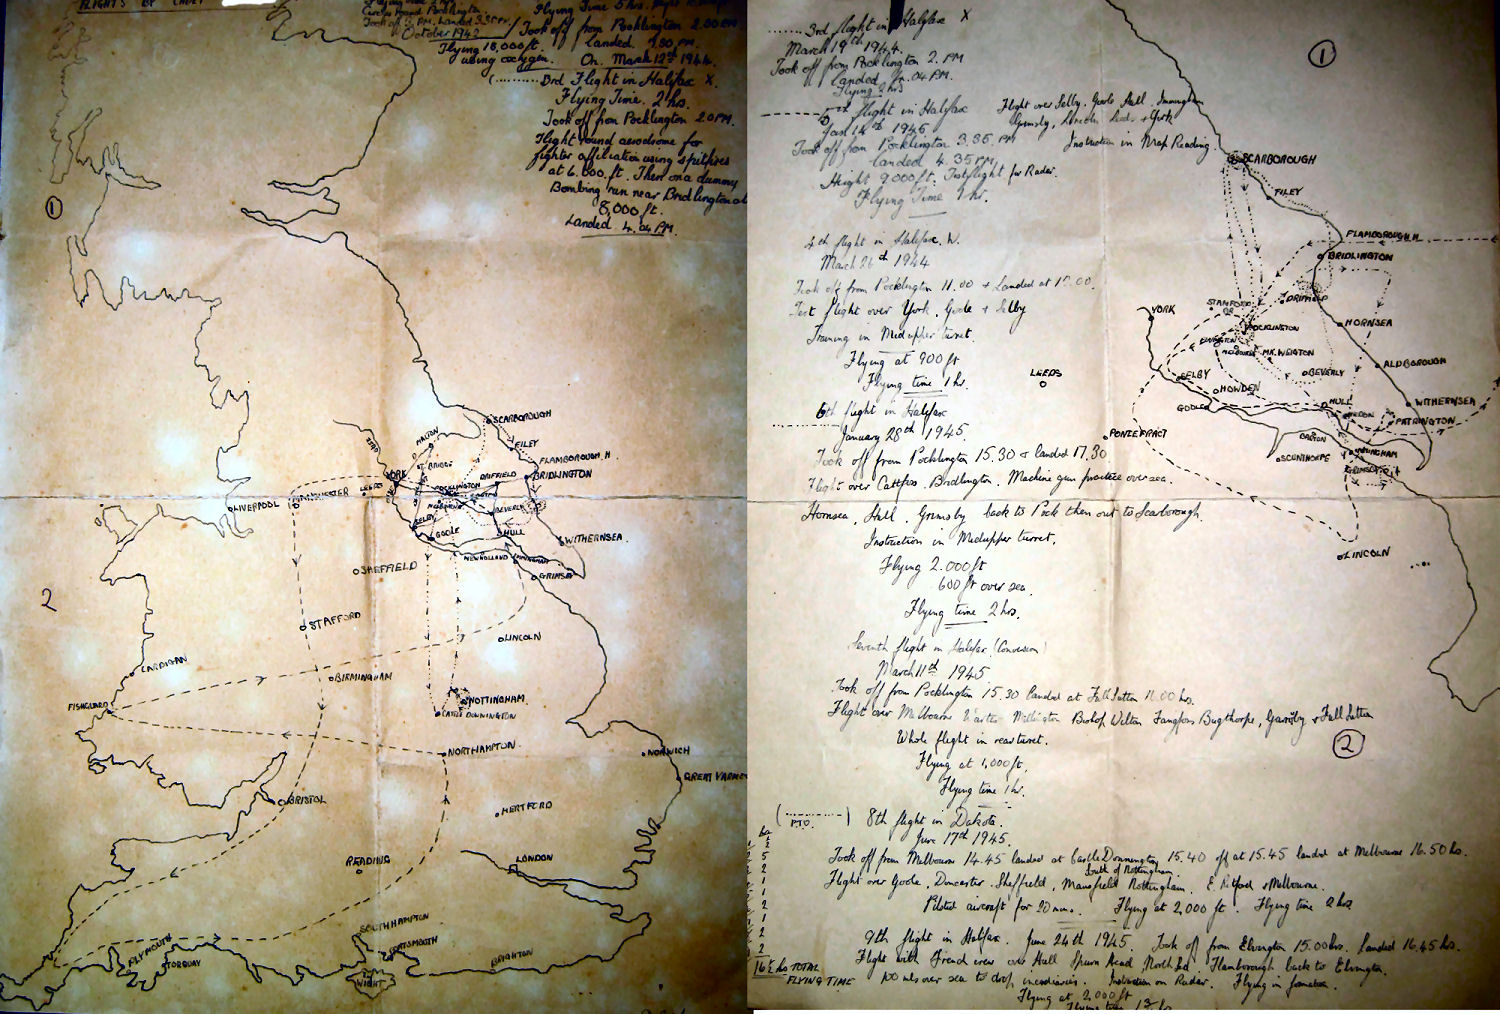 FLIGHTS BY CADET
Circles round Pocklington
Took off 3 PM. Landed 3.30 PM.
October 1943
Flying 18,000 ft.
using oxygen.
Flying Time 5 hrs.
Took off from Pocklington 2.00 PM
landed 7.00 PM.
On March 12th 1944.
(.......... 3rd Flight in Halifax X.
Flying Time. 2 hrs.
Took off from Pocklington 2.0 PM.
Flight round aerodrome for
fighter affiliation using spitfires
at 6,000 ft. Then on a dummy
Bombing run near Bridlington at
8,000 ft.
Landed 4.04 PM.
1
2
SCARBOROUGH
FILEY
FLAMBOROUGH. H
BRIDLINGTON
MALTON
ST. BRIDGE
YORK
DRIFFIELD
POCKLINGTON
MELBOURNE
BEVERLY
SELBY
GOOLE
HULL
WITHERNSEA.
NEW HOLLAND
IMMINGHAM
GRIMSBY
LEEDS
MANCHESTER
LIVERPOOL
SHEFFIELD
STAFFORD
LINCOLN
CARDIGAN
BIRMINGHAM
FISHGUARD
NOTTINGHAM
CASTLE DONNINGTON
NORTHAMPTON.
NORWICH
GREAT YARMO
BRISTOL
HERTFORD
READING
LONDON
SOUTHAMPTON
PORTSMOUTH
PLYMOUTH
TORQUAY
BRIGHTON
WIGHT
....... 3rd flight in Halifax X
March 19th 1944.
Took off from Pocklington 2. PM
Landed 4.04 PM.
Flying 2 hrs
1
5th flight in Halifax
Jan 14th 1945
Took off from Pocklington 3.35 PM
landed 4.35 PM,
Height 9000 ft. Test flight for Radar.
Flying Time 1 hr.
Flight over Selby. Goole Hull. Immingham
Grimsby, Lincoln Leeds + York
Instruction in Map Reading.
4th flight in Halifax. W.
March 26th 1944
Took off from Pocklington 11.00 + Landed at 12.00.
Test flight over York, Goole + Selby
Training in Midupper turret.
Flying at 900 ft
Flying time 1 hr.
6th flight in Halifax
January 28th 1945.
Took off from Pocklington 15.30 & landed 17.30
Flight over Cattfoss. Bridlington. Machine gun practice over sea.
Hornsea, Hull, Grimsby back to Pock then out to Scarborough.
Instruction in Midupper turret,
Flying 2.000 ft
600 ft over sea.
Flying time 2 hrs.
Seventh flight in Halifax (Conversion)
March 11th 1945
Took off from Pocklington 15.30 landed at Full Sutton 16.00 hrs.
Flight over Melbourne Warter Millington Bishop Wilton Fangfoss Bugthorpe, Garroby + Full Sutton
Whole flight in rear turret.
Flying at 1,000 ft,
Flying time 1 hr.
(..............) 8th flight in Dakota.
P.T.O.
June 17th 1945.
Took off from Melbourne 14.45 landed at Castle Donnington 15.40 off at 15.45 landed at Melbourne 16.50 hrs.
South of Nottingham.
Flight over Goole, Doncaster. Sheffield, Mansfield Nottingham. E. Retford + Melbourne.
Piloted aircraft for 20 mins. Flying at 2,000 ft. Flying time 2 hrs
9th flight in Halifax. June 24th 1945. Took off from Elvington 15.00 hrs. Landed 16.45 hrs.
Flight with French crew over Hull Spurn Head, North Sea Flamborough back to Elvington.
100 mls over sea to drop incendiaries. Instruction on Radar. Flying in formation.
Flying at 2,000 ft
hrs
2
5
2
1
1
2
1
2
2
TOTAL
FLYING TIME
SCARBOROUGH
FILEY
FLAMBOROUGH. H
BRIDLINGTON
STAMFORD
BR
DRIFFIELD
YORK
POCKLINGTON
HORNSEA
ELVINGTON
MELBOURNE
MK. WEIGTON
BEVERLY
ALDBOROUGH
LEEDS
SELBY
HOWDEN
GOOLE
HULL
HEDON
WITHERNSEA
PATRINGTON
PONTEFRACT
BARTON
SCUNTHORPE
IMMINGHAM
GRIMSBY
LINCOLN
2